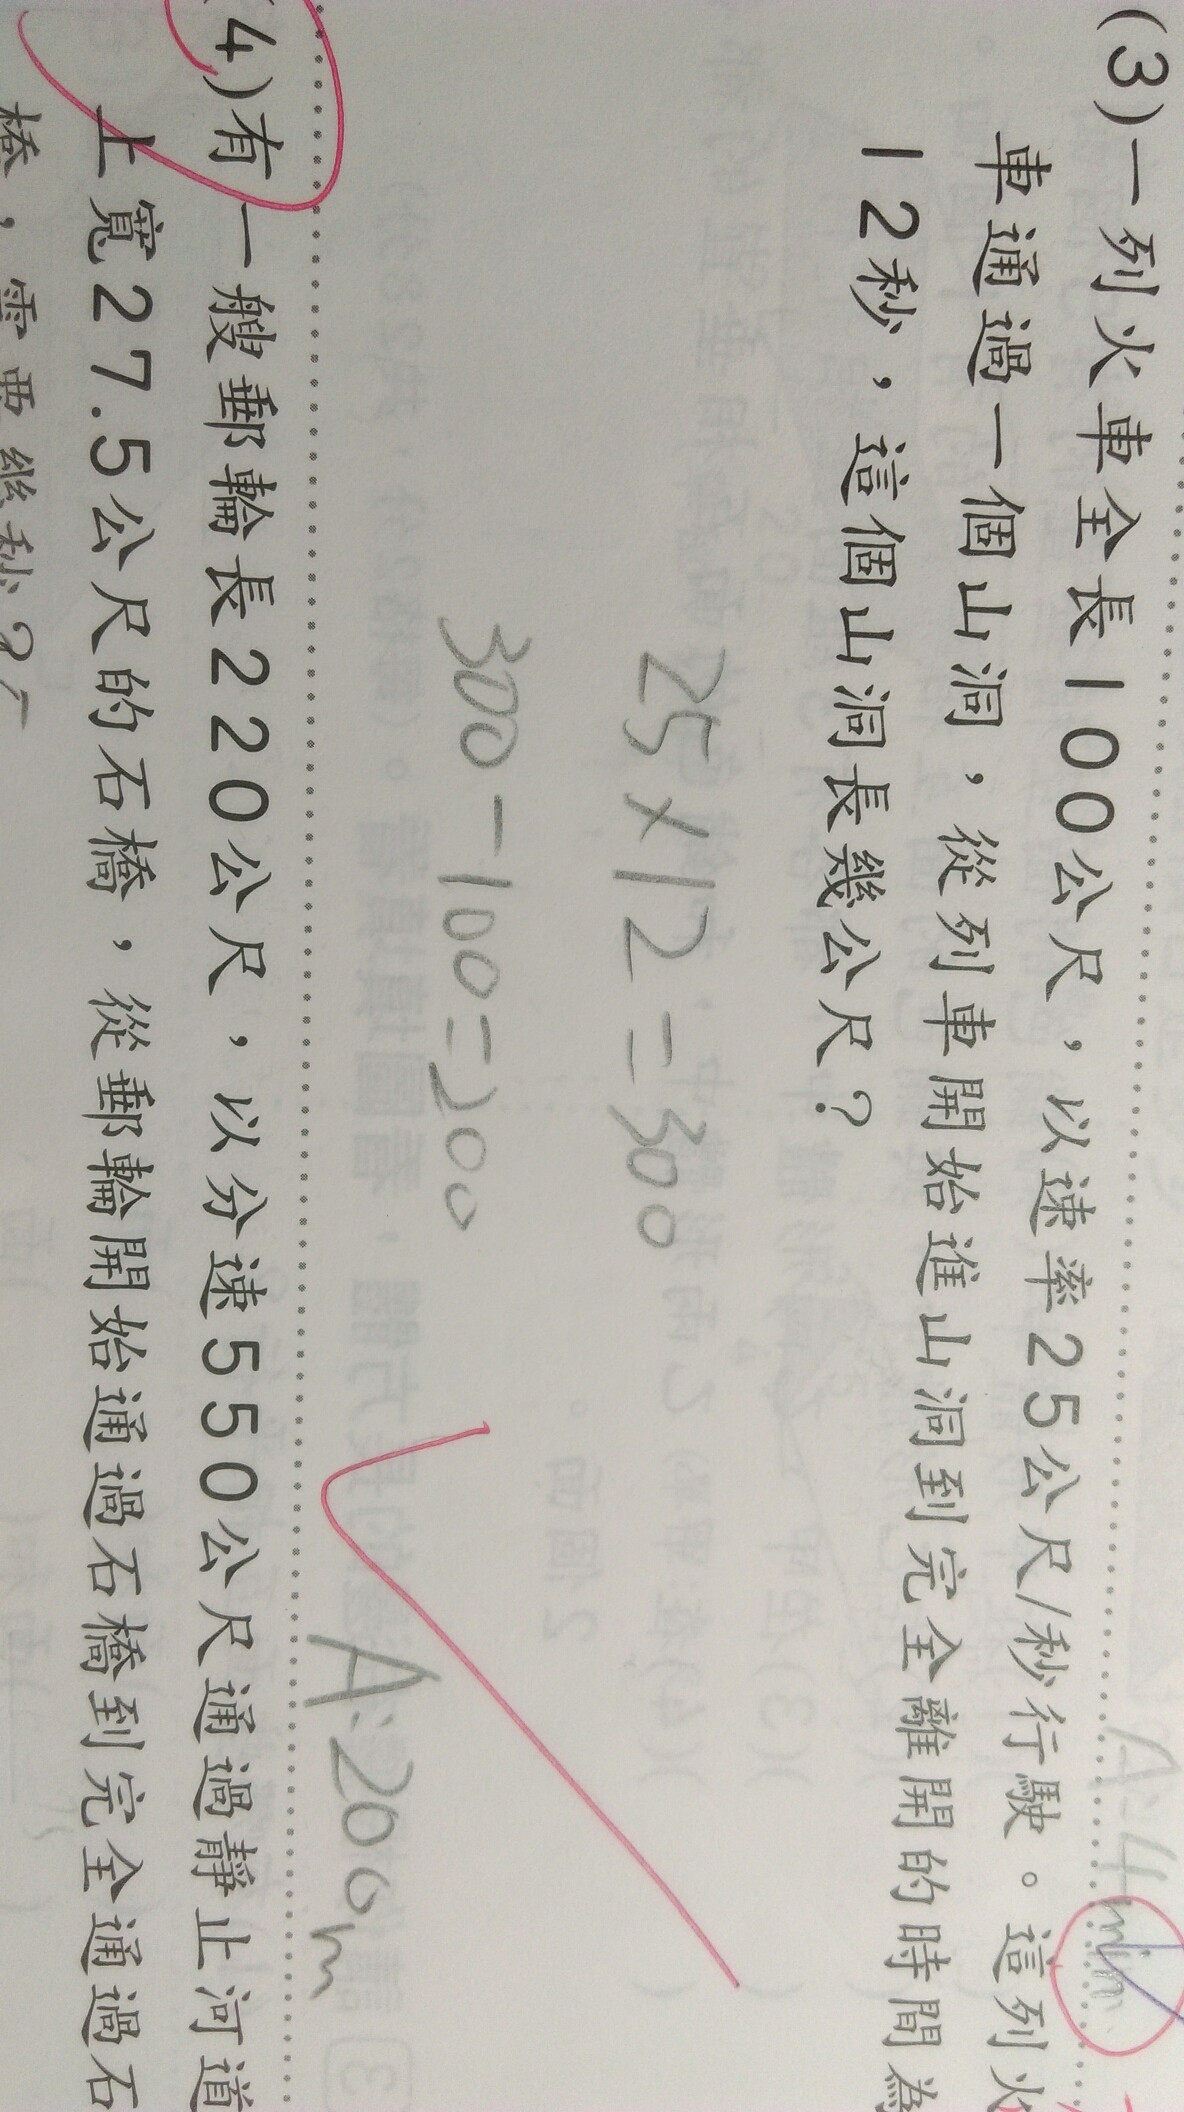 A:4min
(3)一列火車全長100公尺，以速率25公尺/秒行駛。這列火
車通過一個山洞，從列車開始進山洞到完全離開的時間為
12秒，這個山洞長幾公尺？
25×12=300
300-100=200
A:200m
(4)有一艘郵輪長220公尺，以分速550公尺通過靜止河道
上寬27.5公尺的石橋，從郵輪開始通過石橋到完全通過石
橋，需要幾秒？